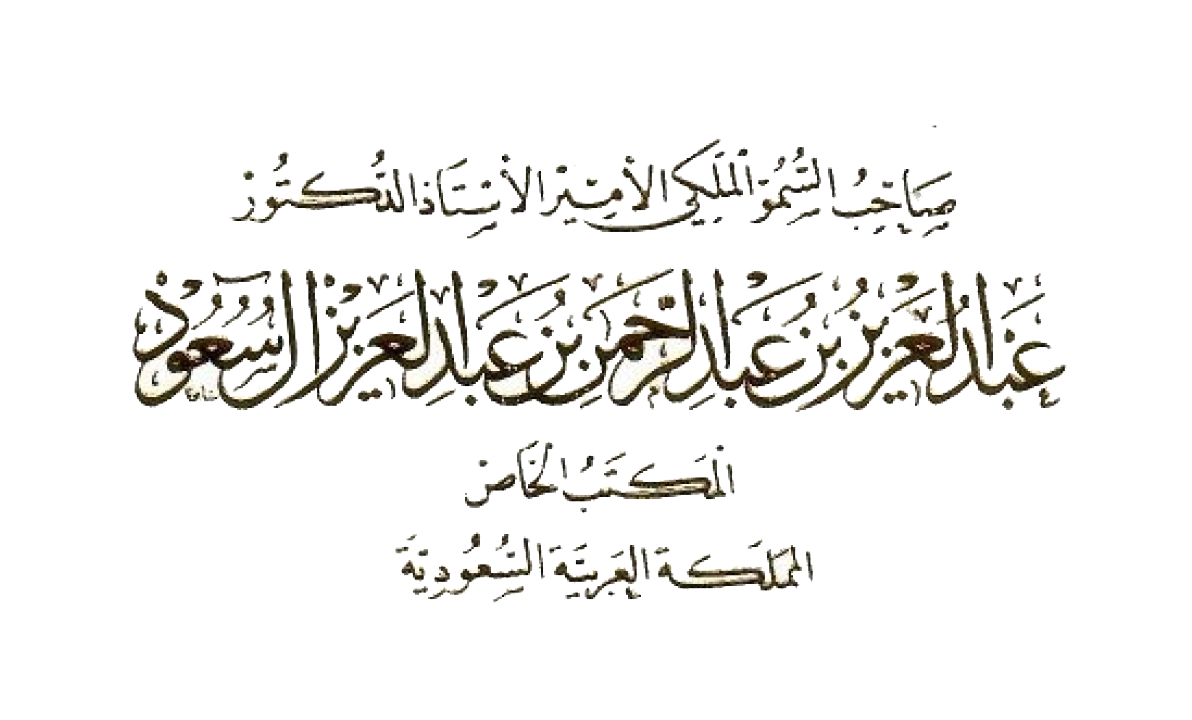 صَاحِبُ السُّمُوّ الْمَلَكِي الأَمِيْر الأُسْتَاذ الدُّكْتُورْ
عَبْدُ الْعَزِيْزِ بْنُ عَبْدِ الرَّحْمَنِ بْنِ عَبْدِ الْعَزِيْزِ آلُ سُعُوْدْ
الْمَكْتَبُ الْخَاصْ
الْمَمْلَكَة الْعَرَبِيَّة السُّعُودِيَّة